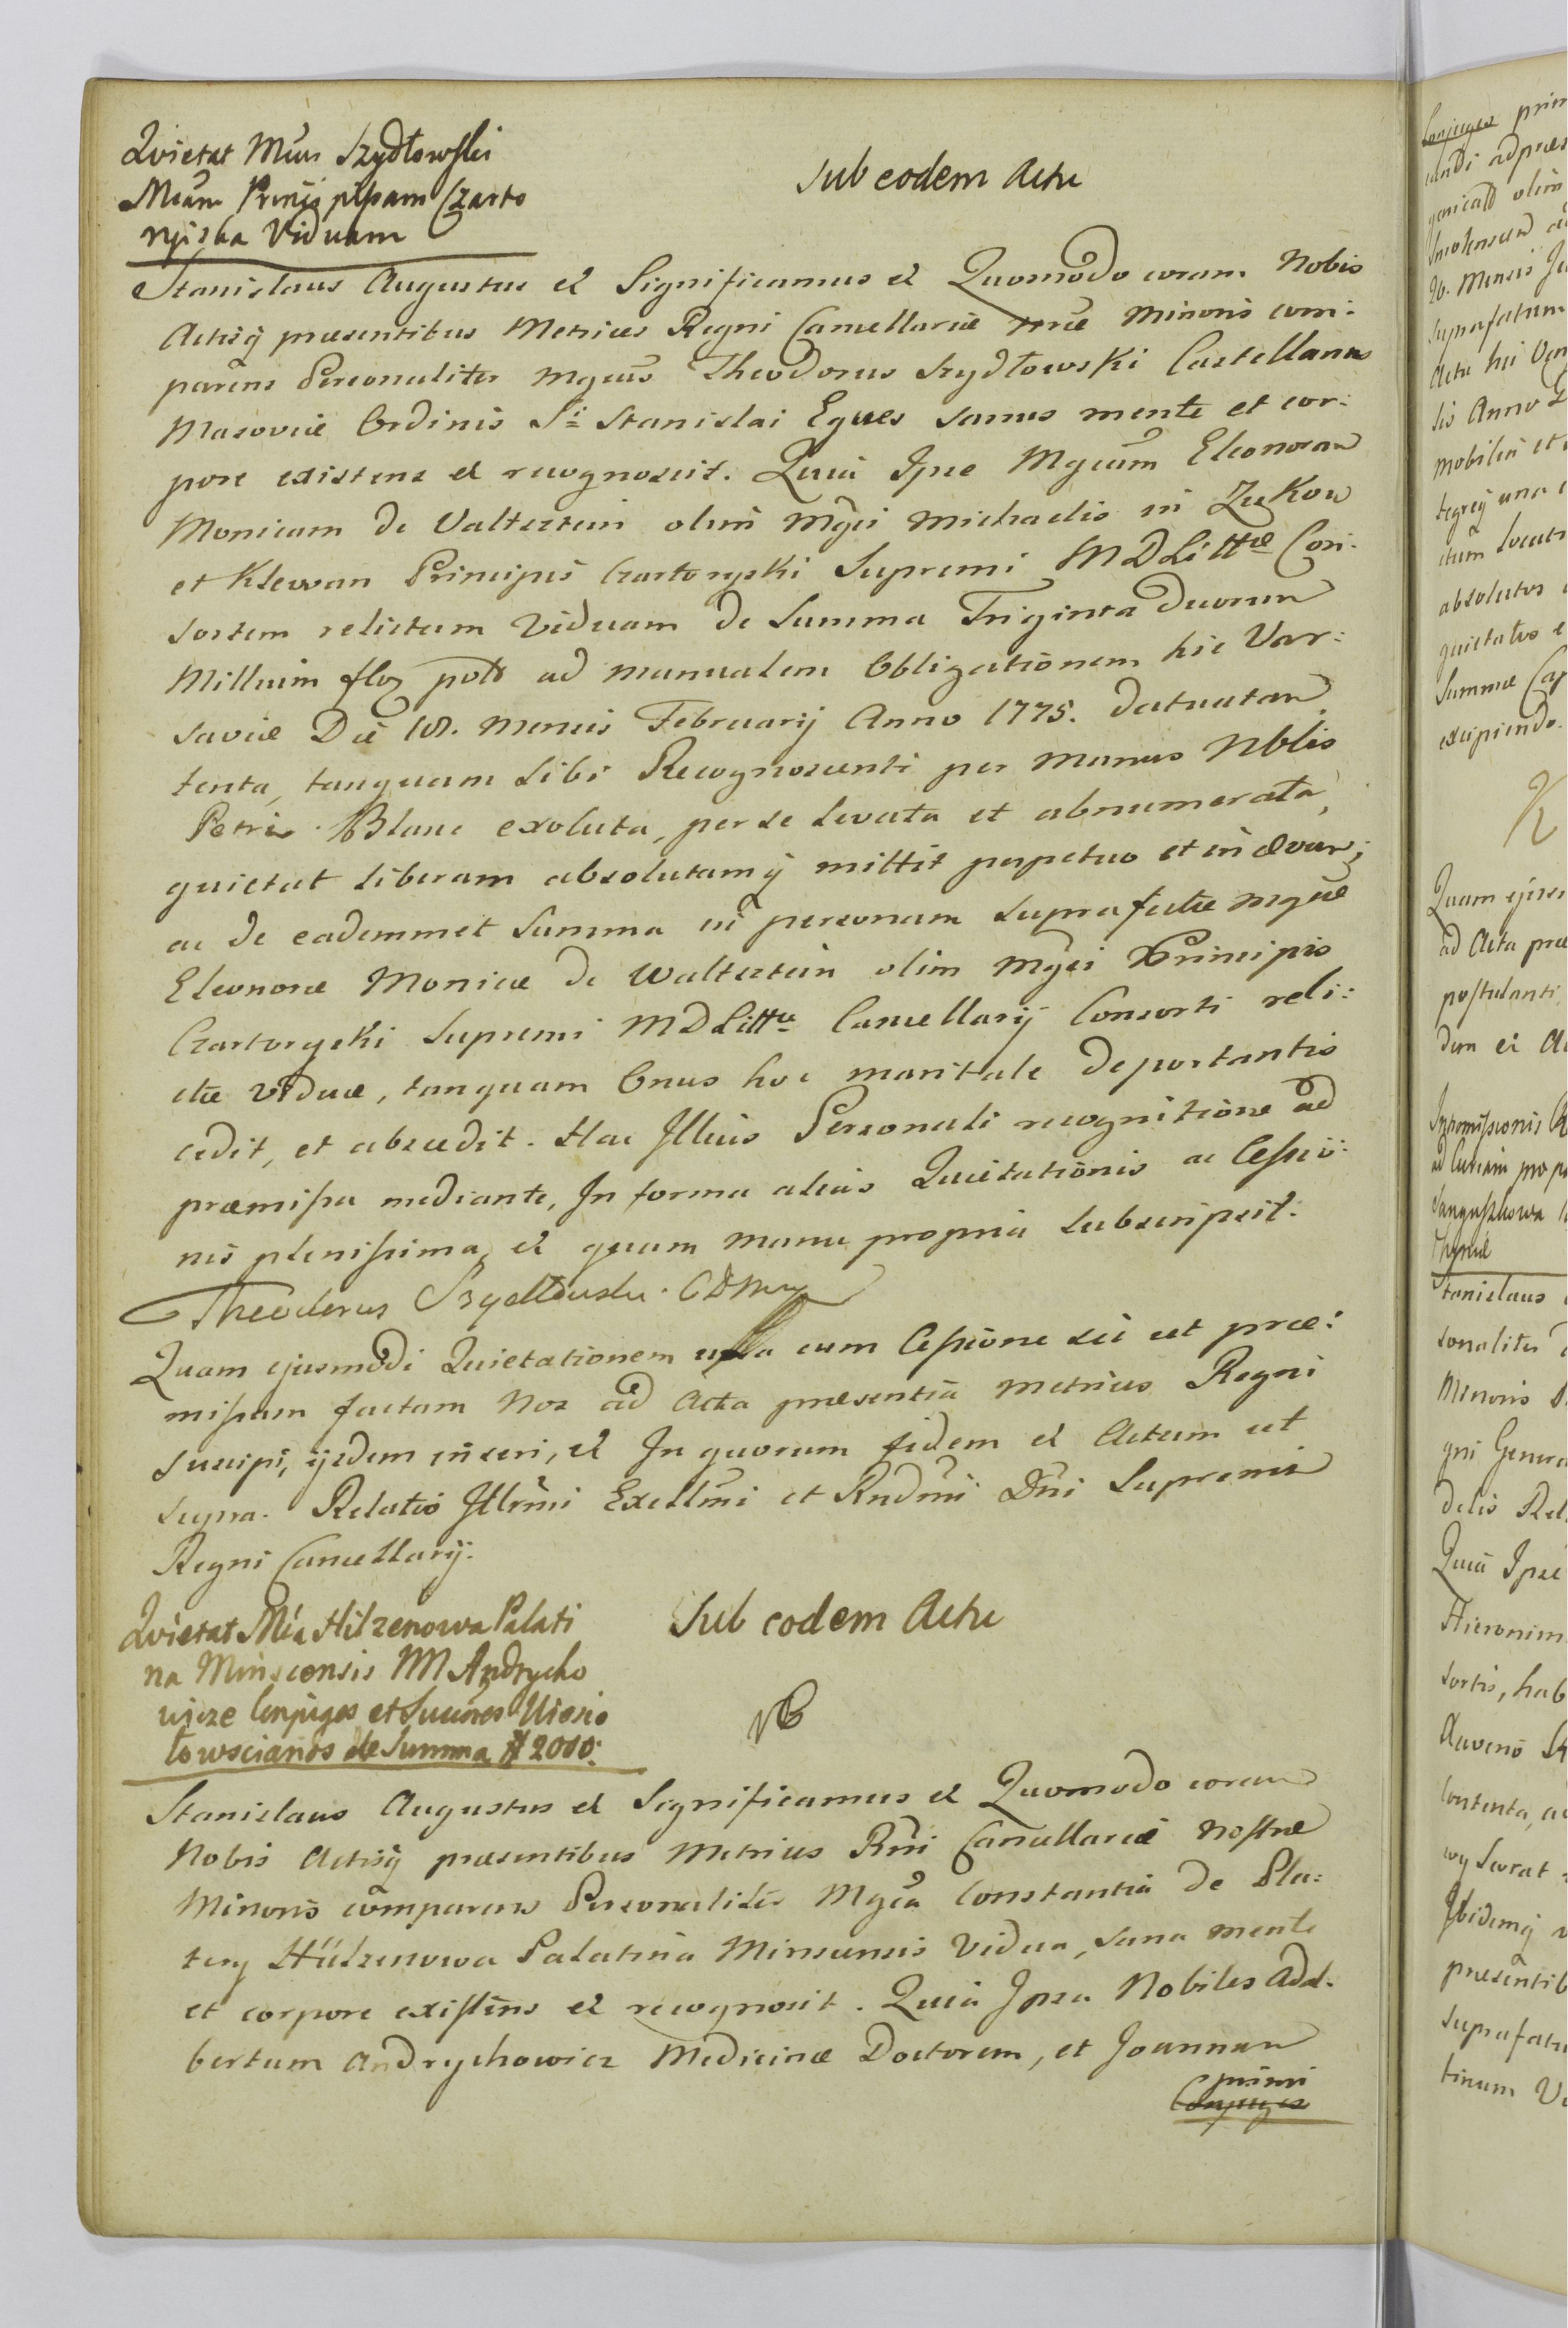 Quietat Mcus Szydłowski
Mcam Princip̃ipsam Czarto
ryiska Viduam
Sub eodem Actu
Stanislaus Augustus et Significamus et Quomodo coram Nobis
Actisq præsentibus Metrices Regni Cancellariæ nræ Minoris com:
parens Personaliter Mgcus Theodorus Szydłowski Castellanus
Masoviæ Ordinis S̃i Stanislai Eques sanus mente et cor:
pore existens et recognoscit. Quia Ipse Mgcam Eleonoram
Monicam de Valtsztein olim Mgci Michaelis in Zukow
et Klewan Principis Czartoryski Supremi MDLittæ Con:
sortem relictam Viduam de Summa Triginta Duorum
Millium floz polo ad manualem Obligationem hic Var:
saviæ Die 18. Mensis Februarij Anno 1775. datuatam
tenta, tanquam Sibi Recognoscenti per manus Nblis
Petri Blanc exoluta, per se levata et abnumerata,
quietat liberam absolutamq mittit perpetuo et in ævum;
ac de eademmet Summa in personam suprafatæ Mgcæ
Eleonoræ Monicæ de Waltsztein olim Mgci Principis
Czartoryski Supremi MDLittæ Cancellarij Consorti reli:
ctæ Viduæ, tanquam Onus hoc maritale deportantis
cedit, et abscedit. Hac Illius Personali recognitione ad
præmissa mediante, In forma alias Quietationis ac Cessio:
nis plenissima, et quam manu propria subscripsit.
Theodorus Szydłowski. CDMaz
Quam ejusmodi Quietationem una cum Cessione sic ut præ:
missum factam Nos ad Acta præsentia Metrices Regni
suscipi, ijsdem inseri, et In quorum fidem et Actum ut
supra. Relatio Illrmi Excellmi et Rndmi Dni Supremi
Regni Cancellarij.
Quietat Mca Hilzenowa Palati
na Minscensis NN Andrycho
wicze Conjuges et Succres Wiesio
łowscianos de Summa # 2000.
Sub eodem Actu
NB
Stanislaus Augustus et Significamus et Quomodo coram
Nobis Actisq præsentibus Metrices Rni Cancellariæ nostræ
Minoris comparens Personaliter Mgca Constantia de Pla:
tery Hülzenowa Palatina Minscensis Vidua, sana mente
et corpore existens et recognoscit. Quia Ipsa Nobiles Adal:
bertum Andrychowicz Medicinæ Doctorem, et Joannam
primi
Conjuges